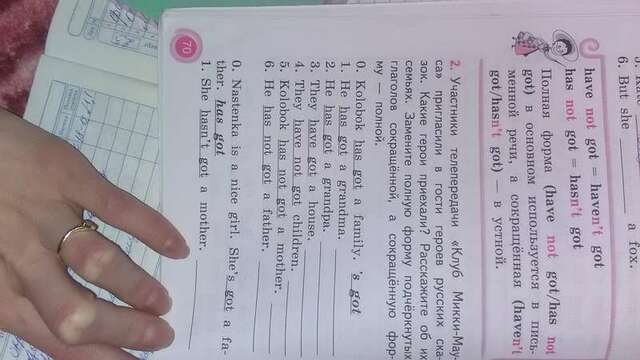 6. But she ________ a fox.
have not got = haven't got
has not got = hasn't got
Полная форма (have not got/has not
got) в основном используется в пись-
менной речи, а сокращённая (haven't
got/hasn't got) — в устной.
2. Участники телепередачи «Клуб Микки-Мау-
са» пригласили в гости героев русских ска-
зок. Какие герои приехали? Расскажите об их
семьях. Замените полную форму подчёркнутых
глаголов сокращённой, а сокращённую фор-
му — полной.
0. Kolobok has got a family. 's got
1. He has got a grandma.
2. He has got a grandpa.
3. They have got a house.
4. They have not got children.
5. Kolobok has not got a mother.
6. He has not got a father.
0. Nastenka is a nice girl. She's got a fa-
ther. has got
1. She hasn't got a mother.
70